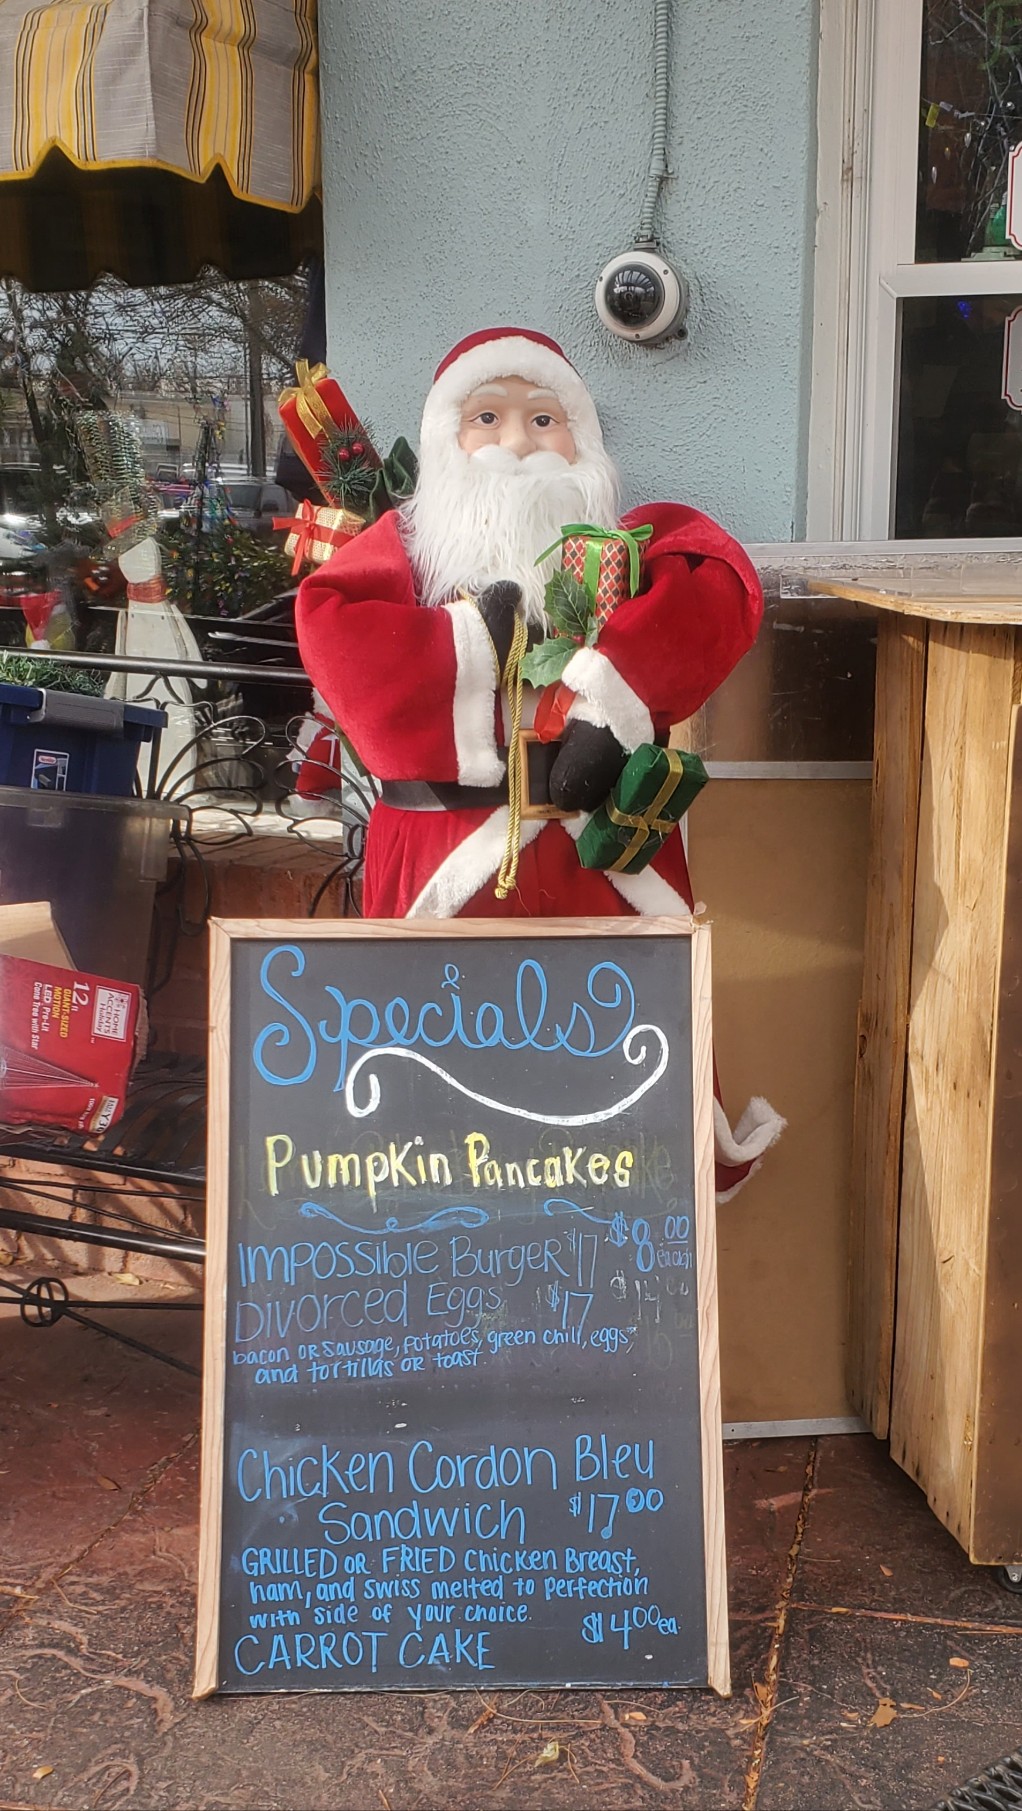 Specials
Pumpkin Pancakes
$8.00
each
Impossible Burger $17
Divorced Eggs $17
bacon or sausage, potatoes, green chili, eggs,
and tortillas or toast
Chicken Cordon Bleu
Sandwich $17.00
GRILLED OR FRIED Chicken Breast,
ham, and swiss melted to perfection
with side of your choice.
$14.00 ea.
CARROT CAKE
HOME
ACCENTS
Holiday
12 ft
GIANT-SIZED
MOTION
LED Pre-Lit
Cone Tree with Star